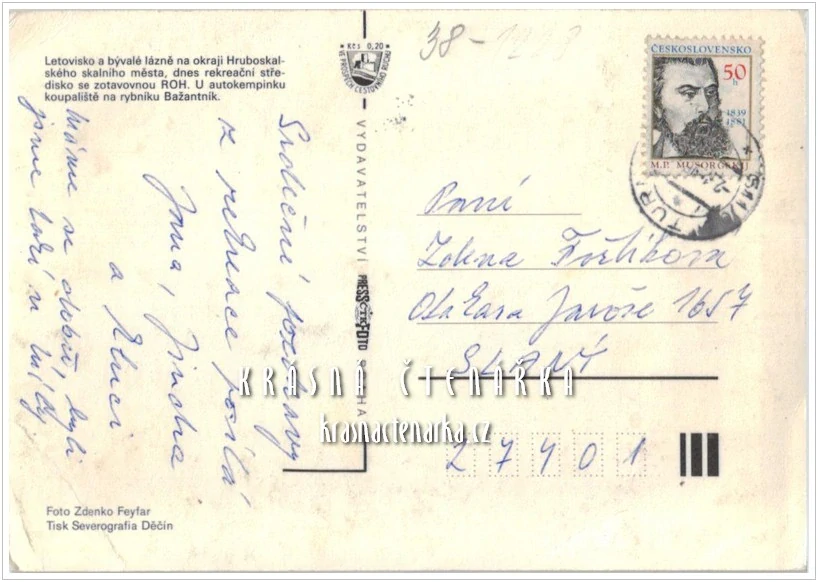 Letovisko a bývalé lázně na okraji Hruboskal-
ského skalního města, dnes rekreační stře-
disko se zotavovnou ROH. U autokempinku
koupaliště na rybníku Bažantník.
Kčs 0,20
VE PROSPĚCH CESTOVNÍHO RUCHU
38 -
ČESKOSLOVENSKO
50 h
1839
1881
M.P. MUSORGSKIJ
TUR
Srdečné pozdravy
z rekreace posílá
Jana, Jindra
a kluci
Máme se dobře, byli
jsme loni u
VYDAVATELSTVÍ PRESSFOTO PRAHA
Paní
Zdena
Otakara Jaroše 1657
SLANÝ
27401
KRÁSNÁ ČTENÁRKA
krasnactenarka.cz
Foto Zdenko Feyfar
Tisk Severografia Děčín